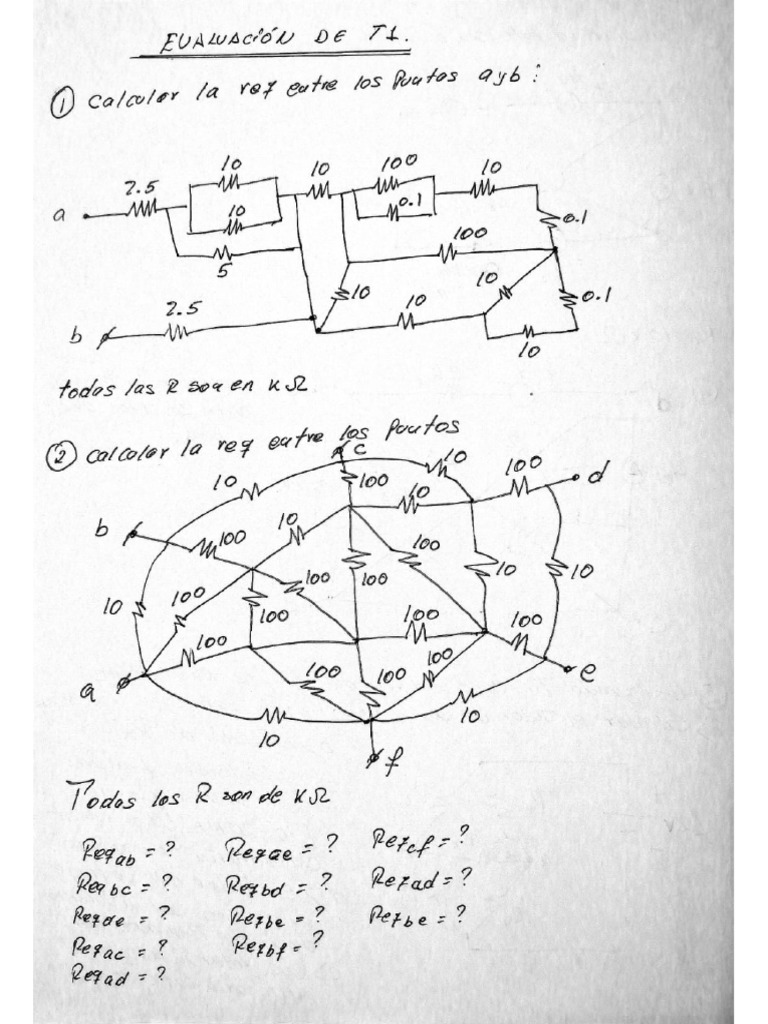 EVALUACIÓN DE T1.
① Calcular la req entre los Puntos a y b:
2.5 10 10 100 10
a 10 0.1 0.1
5 100
10 10 10 0.1
b 2.5 10
todas las R son en KΩ
② Calcular la req entre los Puntos
c
10 100 10 100 d
b 100 10 10
100 100 100 10 10
10 100 100 100 100
a 100 100 100 100 e
10 10
f
Todos los R son de KΩ
Reqab = ? Reqae = ? Reqcf = ?
Reqbc = ? Reqbd = ? Reqad = ?
Reqde = ? Reqbe = ? Reqbe = ?
Reqac = ? Reqbf = ?
Reqad = ?